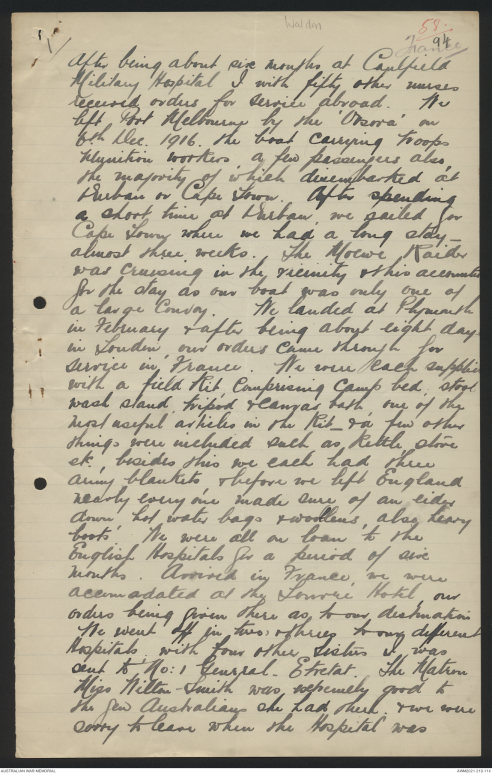 Waldon
58.
94
France
1/
After being about six months at Caulfield
Military Hospital I with fifty other nurses
received orders for service abroad. We
left Port Melbourne by the 'Orsova' on
6th Dec. 1916. the boat carrying troops
Munition workers, a few passengers also,
the majority of which disembarked at
Durban or Cape Town. After spending
a short time at Durban, we sailed for
Cape Town where we had a long stay -
almost three weeks. The Moewe Raider
was cruising in the vicinity & this accounted
for the stay as our boat was only one of
a large convoy. We landed at Plymouth
in February & after being about eight days
in London, our orders came through for
service in France. We were each supplied
with a field Kit comprising camp bed, stool
wash stand, tripod & canvas bath, one of the
most useful articles in the Kit - & a few other
things were included such as, Kettle, stove
etc, besides this we each had three
army blankets, & before we left England
nearly every one made sure of an eider
down, hot water bags & woollens, also heavy
boots. We were all on loan to the
English Hospitals for a period of six
months. Arrived in France, we were
accomadated at the Louvre Hotel, our
orders being given there as to our destination
We went off in twos & threes to our different
Hospitals, with four other sisters I was
sent to No: 1 General - Etretat. The Matron
Miss Wilton-Smith was extremely good to
the few Australians she had there. & we were
sorry to leave when the Hospital was
AUSTRALIAN WAR MEMORIAL